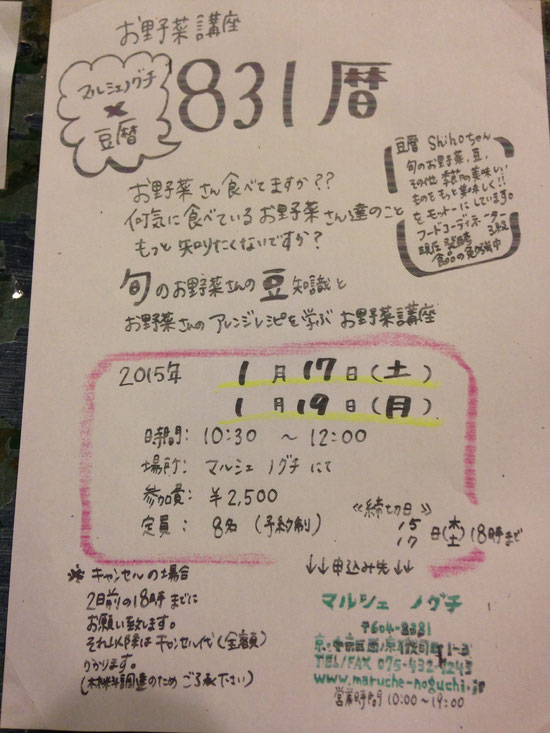 お野菜講座
マルシェノグチ
×
豆暦
831暦
豆暦 Shihoちゃん
旬のお野菜、豆、
その他 素材の美味しい
ものをもっと美味しく!!
をモットーにしています。
フードコーディネーター
3級
現在 発酵
食品の勉強中
お野菜さん食べてますか??
何気に食べているお野菜さん達のこと
もっと知りたくないですか?
旬のお野菜さんの豆知識と
お野菜さんのアレンジレシピを学ぶお野菜講座
2015年 1月17日(土)
1月19日(月)
時間: 10:30 ～ 12:00
場所: マルシェ ノグチ にて
参加費: ¥2,500
定員: 8名 (予約制)
≪締切日≫
15日(木)
17日(土) 18時まで
※ キャンセルの場合
2日前の18時までに
お願い致します。
それ以降はキャンセル代(全額)
かかります。
(材料調達のため ご了承下さい)
↓↓申込み先↓↓
マルシェ ノグチ
〒604-8381
TEL/FAX 075-432-7243
www.maruche-noguchi.jp
営業時間 10:00～19:00